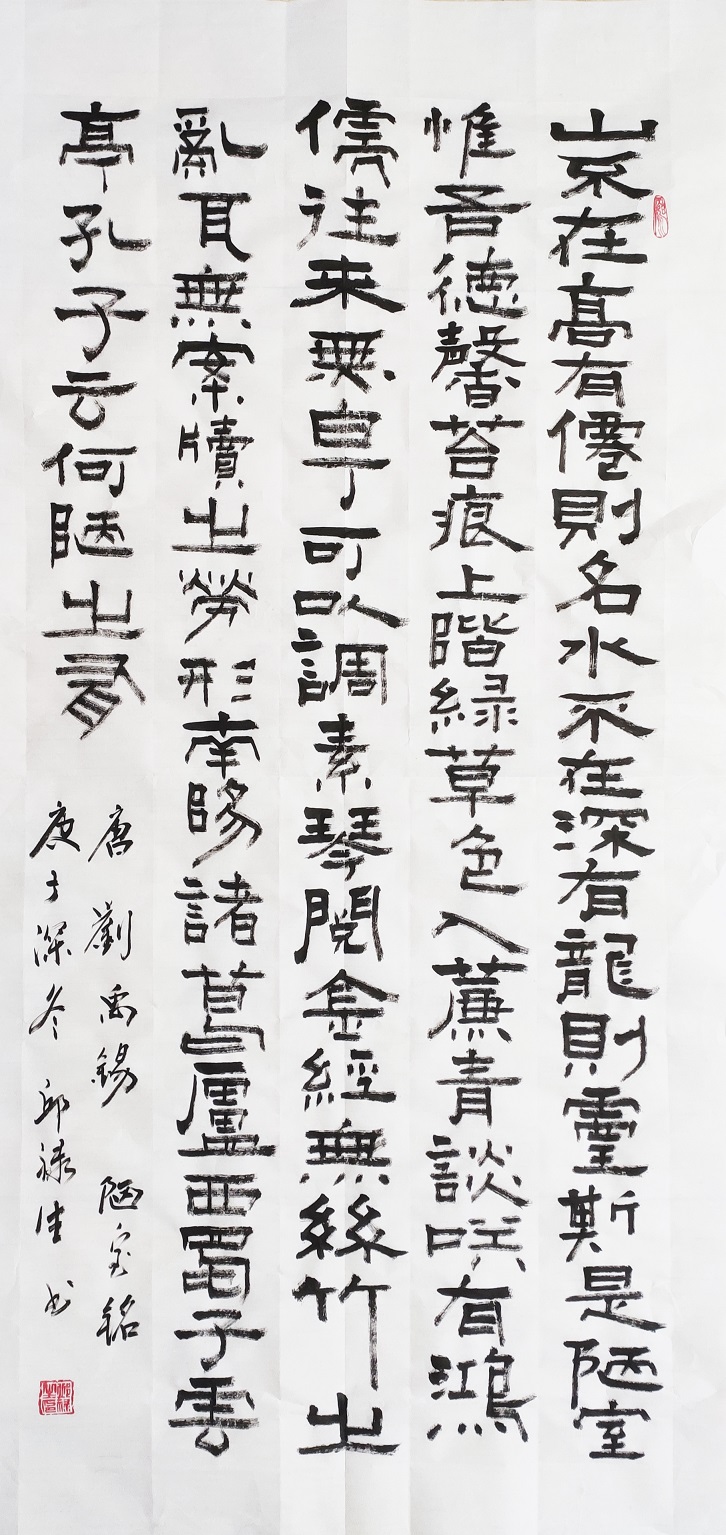 山不在高有僊則名水不在深有龍則靈斯是陋室
惟吾德馨苔痕上階緑草色入薕青談咲有鴻
儒往来無白丁可以調素琴閱金經無絲竹之
亂耳無案牘之勞形南陽諸葛廬西蜀子雲
亭孔子云何陋之有
唐劉禹錫 陋室銘
庚子深冬邱禄佳书